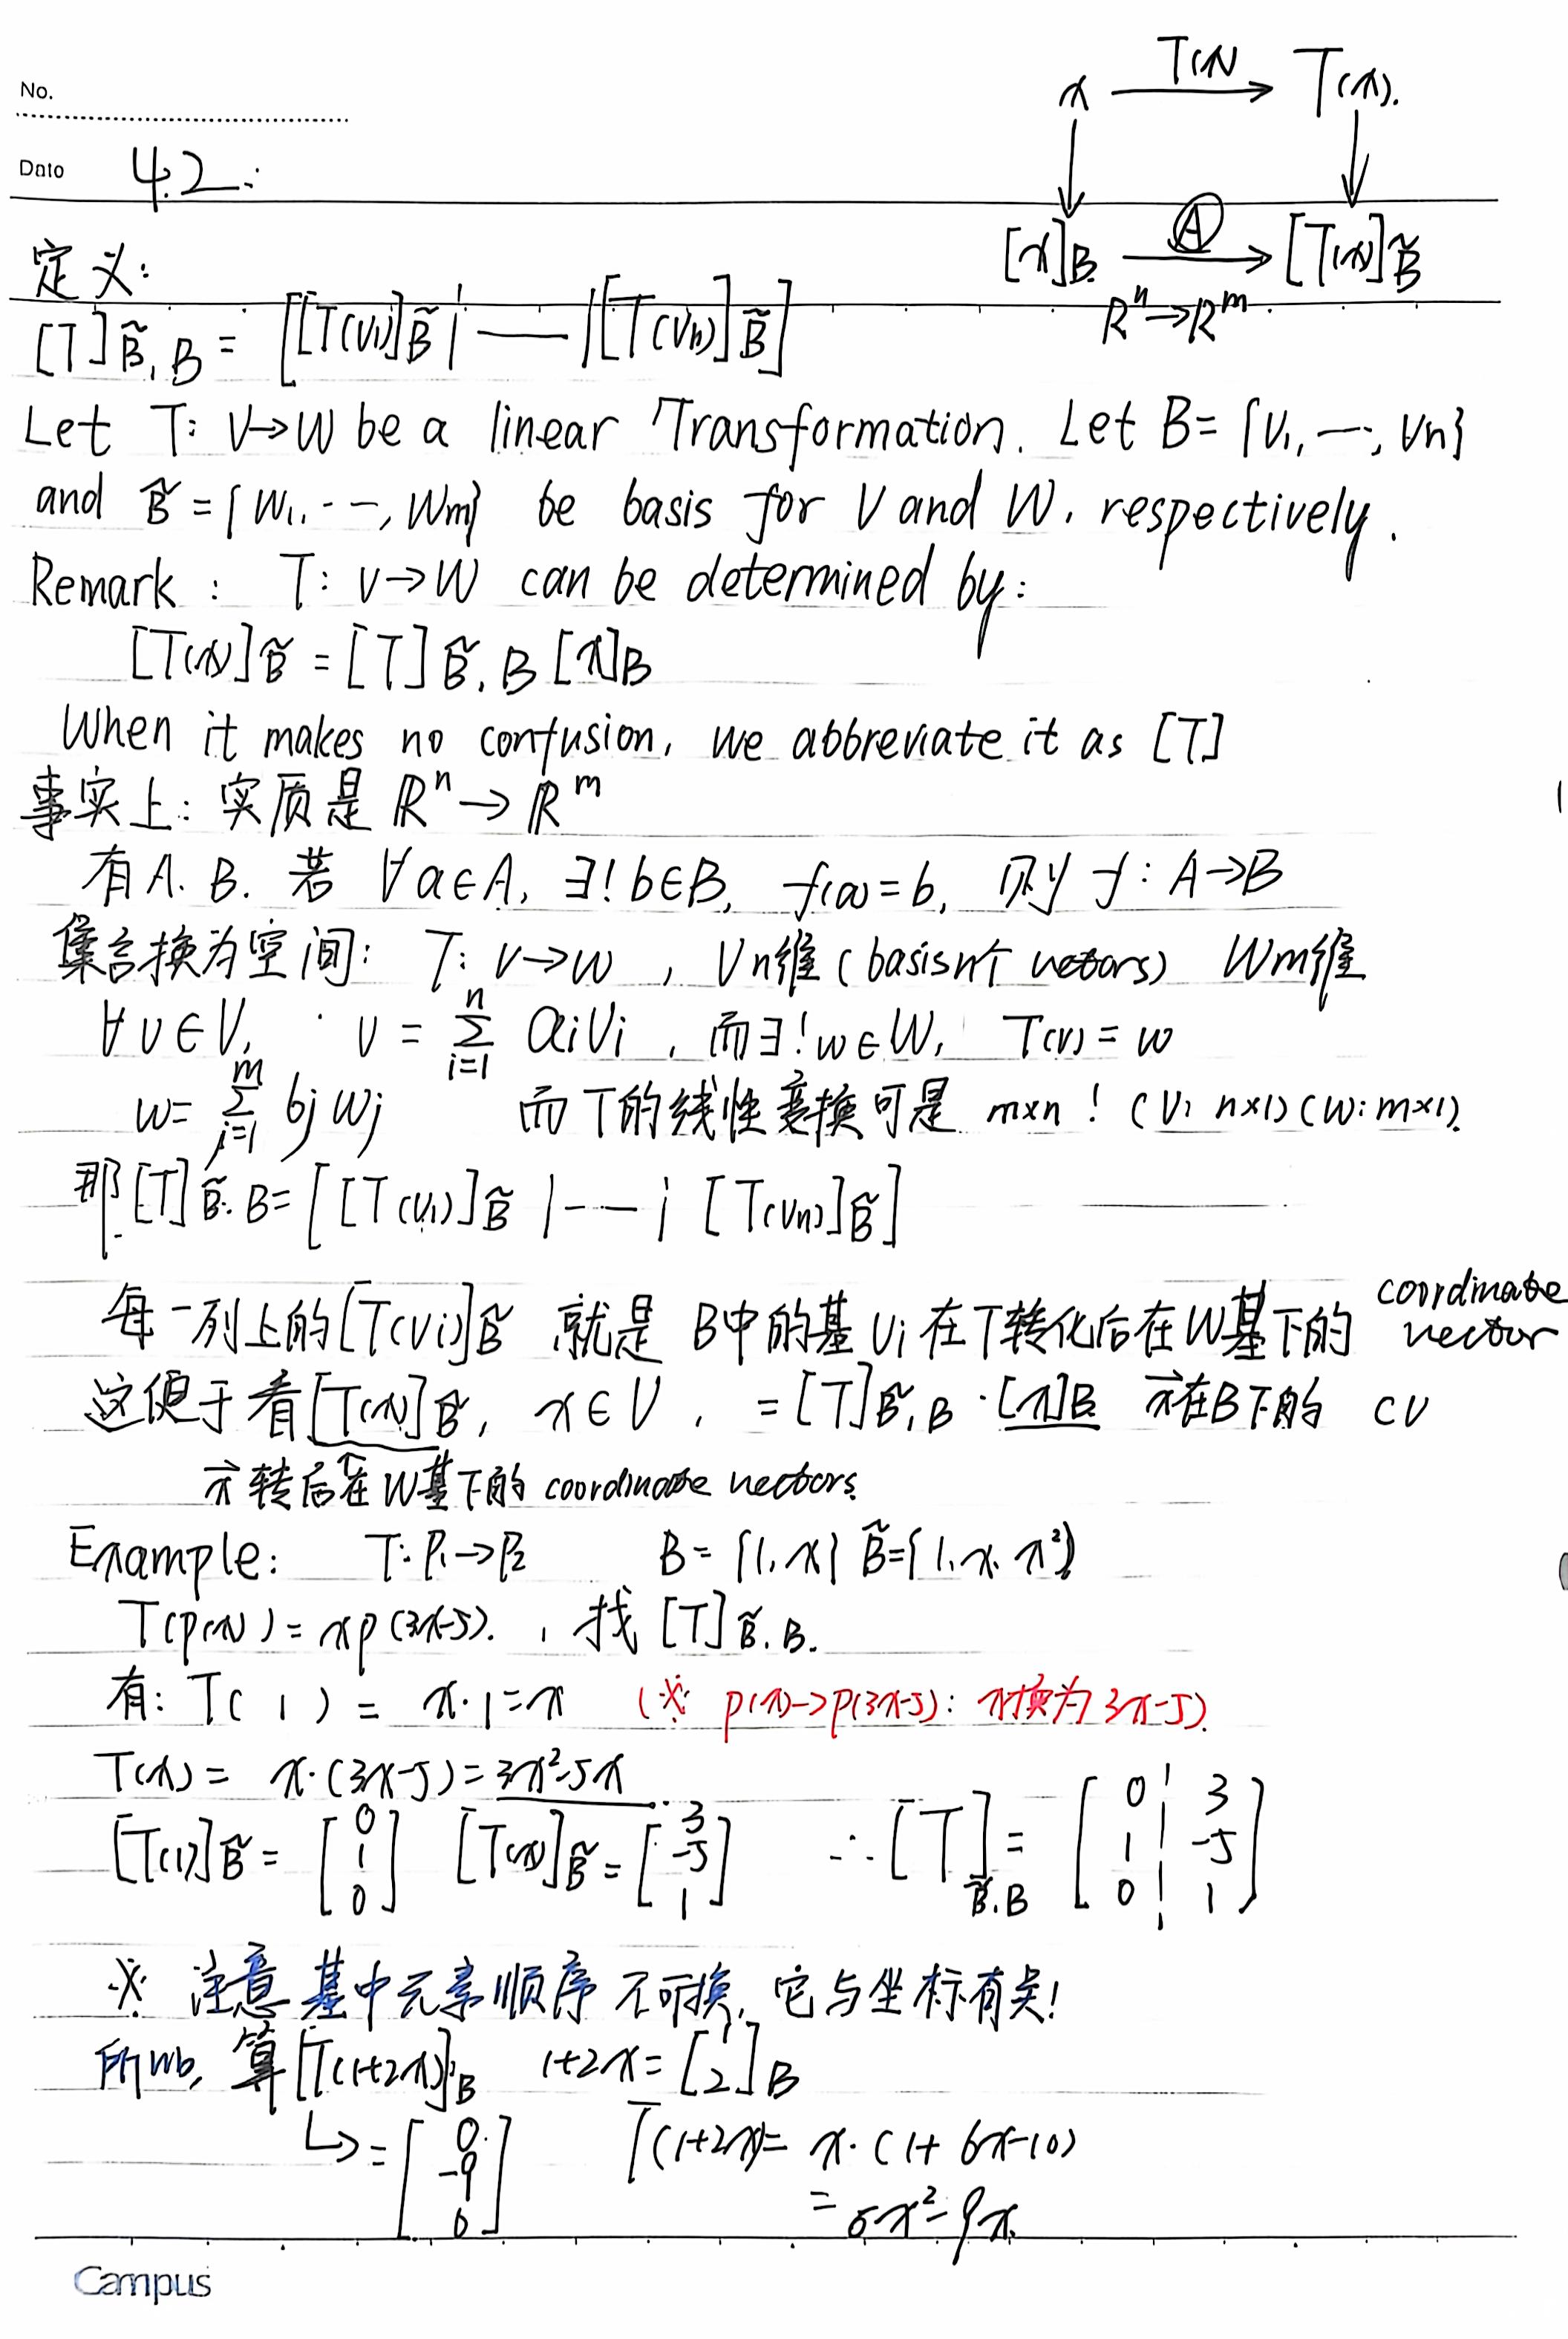 No.
Date 4.2:
x —T(x)→ T(x).
↓ ↓
[x]B —A→ [T(x)]B̃
Rⁿ→Rᵐ
定义:
[T]B̃,B = [[T(v₁)]B̃ | —— | [T(vn)]B̃]
Let T: V→W be a linear Transformation. Let B={v₁, …, vn}
and B̃={w₁, …, wm} be basis for V and W, respectively.
Remark : T: V→W can be determined by:
[T(x)]B̃ = [T]B̃,B [x]B
When it makes no confusion, we abbreviate it as [T]
事实上: 实质是 ℝⁿ→ℝᵐ
有A. B. 若 ∀a∈A, ∃! b∈B, f(a)=b, 则 f: A→B
集合换为空间: T: V→W , V n维 (basis n个 vectors) W m维
∀v∈V, v = Σ(i=1→n) aivi , 而∃! w∈W, T(v)=w
w= Σ(j=1→m) bjwj 而T的线性变换可是 m×n ! (V: n×1)(W: m×1).
那[T]B̃.B=[[T(v₁)]B̃ |--—| [T(vn)]B̃]
每一列上的[T(vi)]B̃ 就是 B中的基 vi 在T转化后在W基下的 coordinate vector
这便于看[T(x)]B̃, x∈V , =[T]B̃,B·[x]B x⃗在B下的 cv
x⃗ 转后在W基下的 coordinate vectors.
Example: T: P₁→P₂ B={1,x} B̃={1.x.x²}
T(p(x))=xp(3x-5). , 找 [T]B̃.B.
有: T( 1 ) = x·1=x (※ p(x)->p(3x-5): x换为 3x-5).
T(x)= x·(3x-5)=3x²-5x
[T(1)]B̃ = [0 1 0] [T(x)]B̃ = [3 -5 1] ∴[T]B̃.B = [0 3 | 1 -5 | 0 1]
※ 注意 基中元素顺序 不可换, 它与坐标有关!
所以, 算[T(1+2x)]B 1+2x=[1 2]B
↳=[0 -9 6] T(1+2x)= x·(1+6x-10)
= 6x²-9x.
Campus